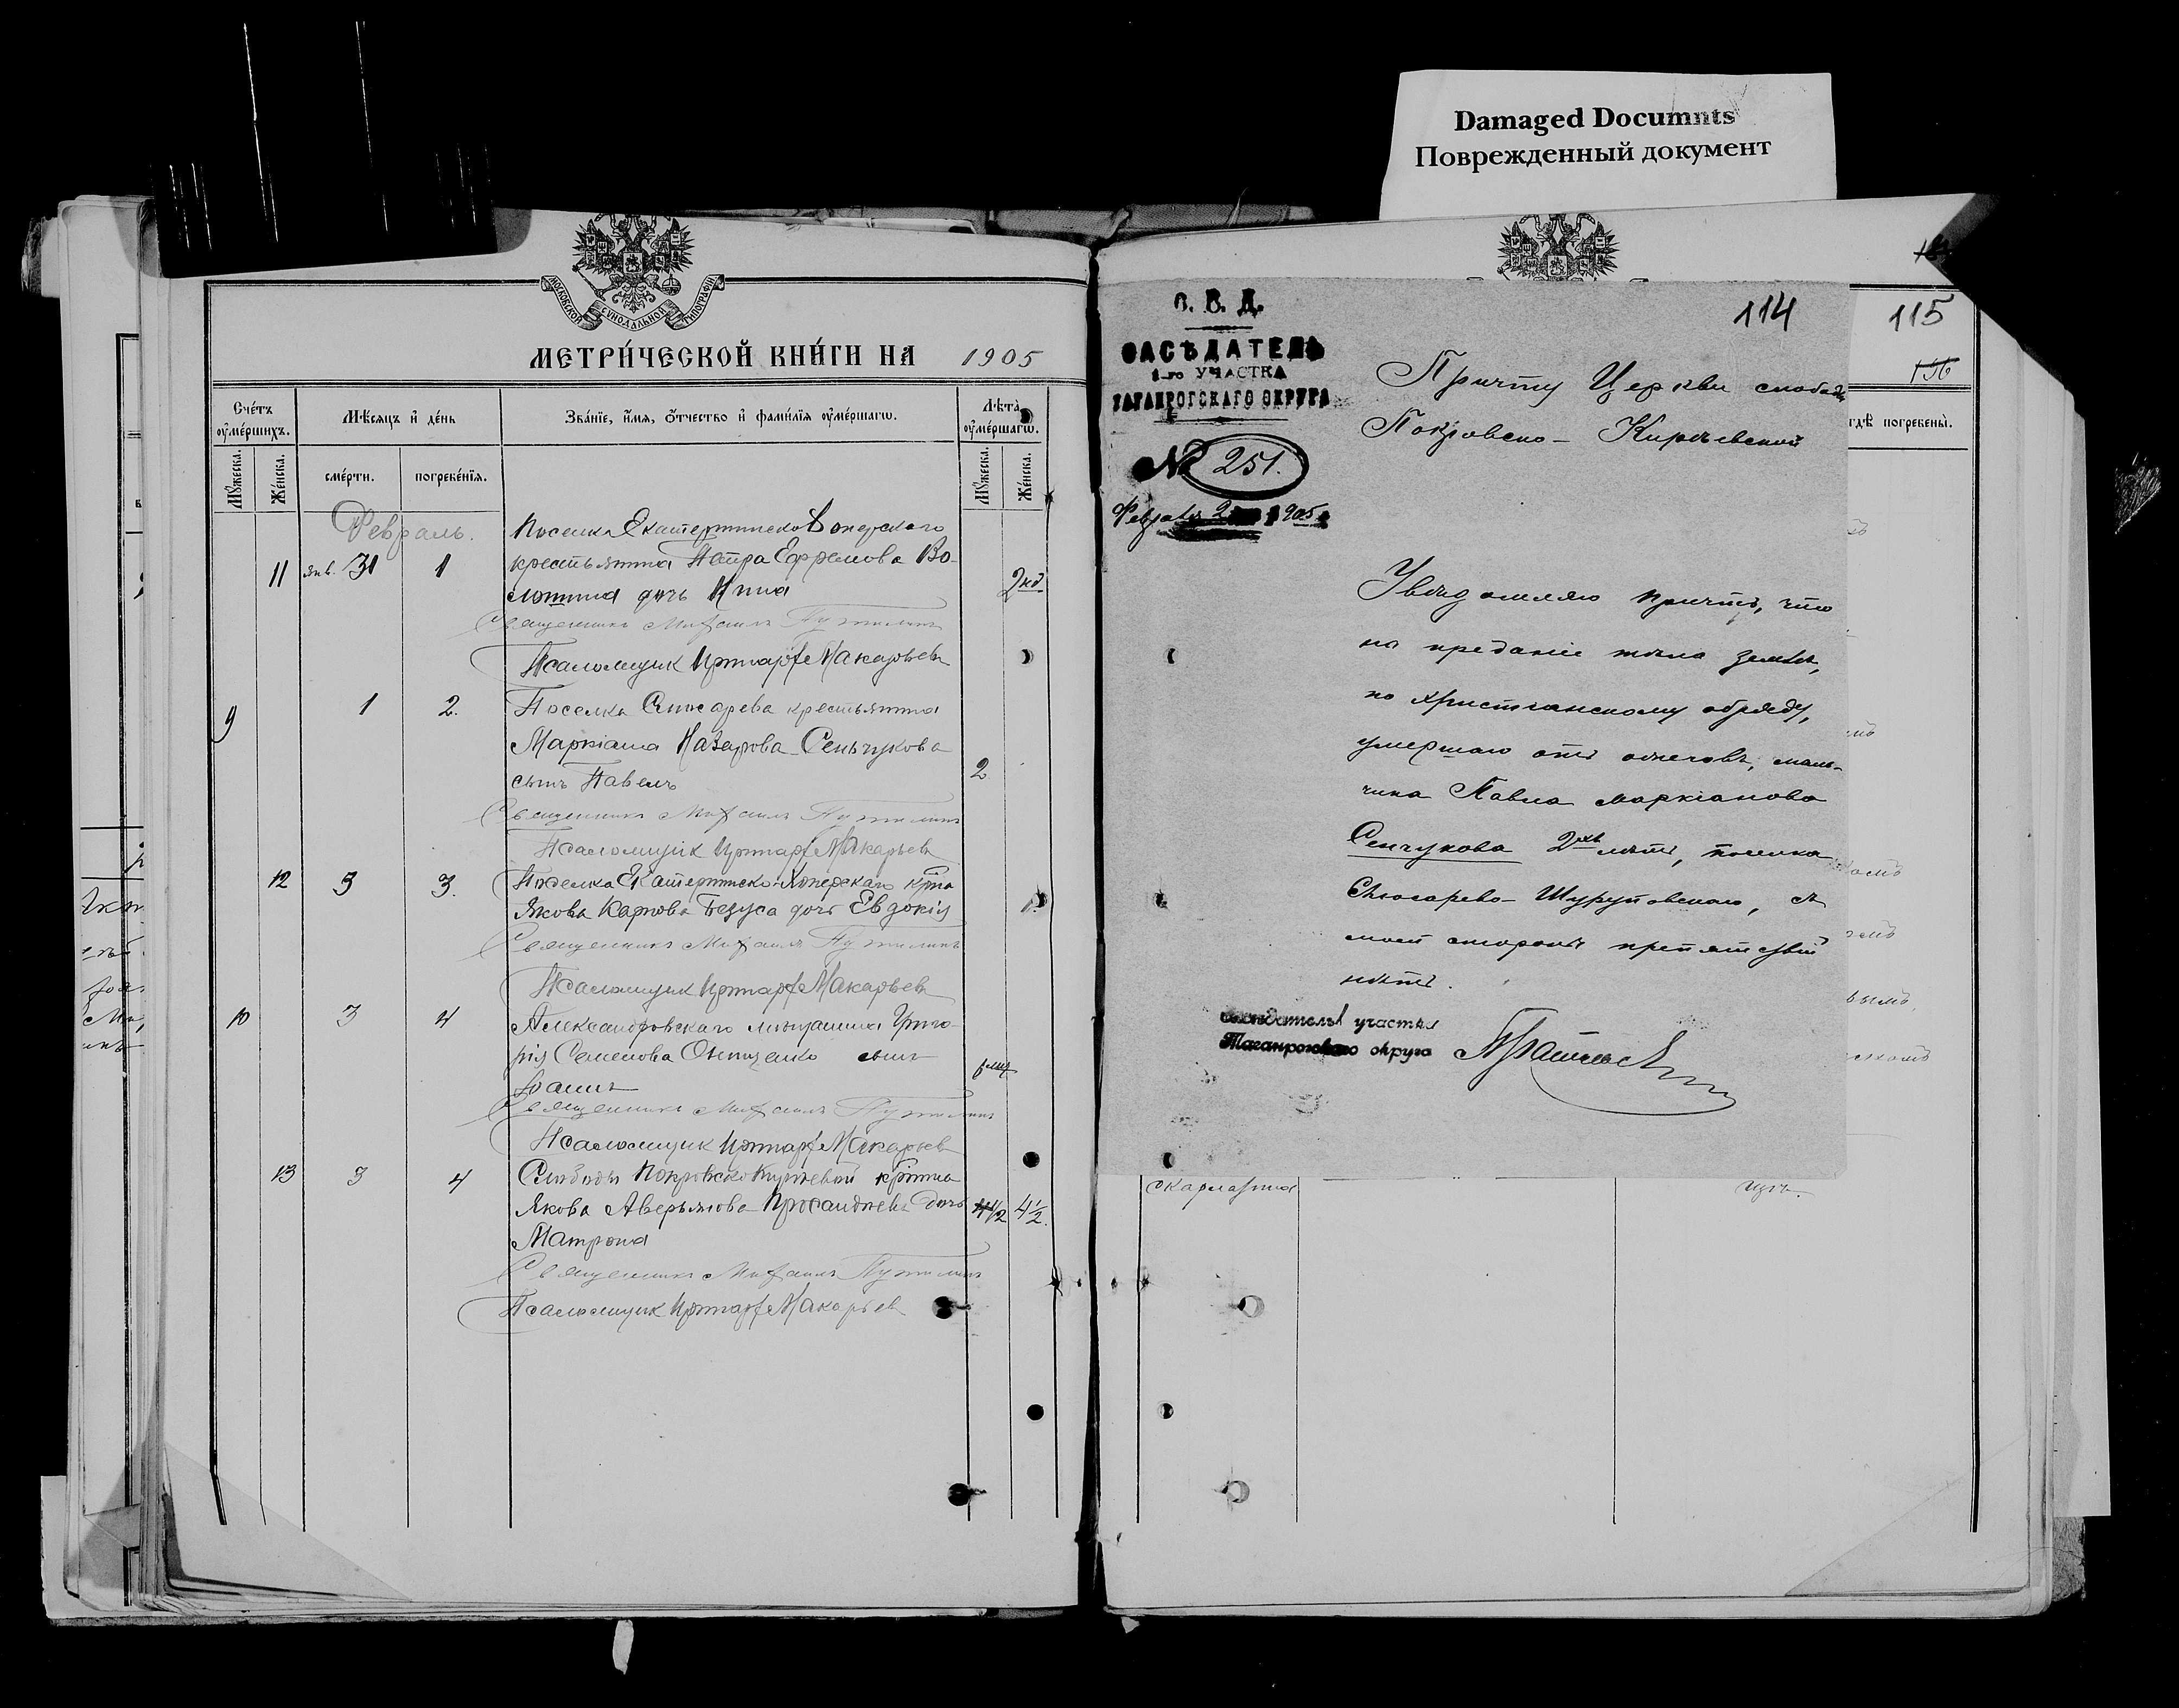 Damaged Documnts
Поврежденный документ
МОСКОВСКОЙ СУНОДАЛЬНОЙ ТИПОГРАФІИ
МЕТРИ́ЧЕСКОЙ КНИ́ГИ НА 1905
Сче́тъ оу҆ме́ршихъ.
Мѣ́сяцъ и҆ де́нь
Зва́нїе, и҆́мя, ѻ҆́тчество и҆ фами́лїя оу҆ме́ршагѡ.
Лѣ́та оу҆ме́ршагѡ.
Мꙋ́жеска.
Же́нска.
сме́рти.
погребе́нїя.
Мꙋ́жеска.
Же́нска.
Февраль.
Поселка Екатерининско Хоперскаго
11 янв. 31 1 крестьянина Петра Ефремова Во-
лошина дочь Нина 2 нд
Священникъ Михаилъ Путилинъ
Псаломщик Макарьевъ
9 1 2. Поселка Слюсарева крестьянина
Маркіана Назарова Сенчукова
сынъ Павелъ 2
Священникъ Михаилъ Путилинъ
Псаломщик Макарьевъ
12 3 3. Поселка Екатерининско-Хоперскаго кр-на
Якова Карпова Безуса дочь Евдокія 1.
Священникъ Михаилъ Путилинъ
Псаломщик Макарьевъ
10 3 4 Александровскаго мѣщанина Григо-
рія Семенова Онищенко сынъ
Іоаннъ
Священникъ Михаилъ Путилинъ
Псаломщик Макарьевъ
13 3 4 Слободы Покровско Киреевой кр-нина
Якова Аверьянова дочь 4½.
Матрона
Священникъ Михаилъ Путилинъ
Псаломщик Макарьевъ
О. В. Д.
ЗАСѢДАТЕЛЬ
1-го УЧАСТКА
ТАГАНРОГСКАГО ОКРУГА
№ 251.
Февраля 2 1905
114
115
156
гдѣ̀ погребены̀.
Причту Церкви слободы
Покровско-Киреевской
Увѣдомляю причтъ, что
на преданіе тѣла землѣ,
по христіанскому обряду,
умершаго отъ ожеговъ, маль-
чика Павла Маркіанова
Сенчукова 2хъ лѣтъ, поселка
Слюсарево-Шурупов­скаго, съ
моей стороны препятствій
нѣтъ.
Засѣдатель 1 участка
Таганрогскаго округа
скарлатина